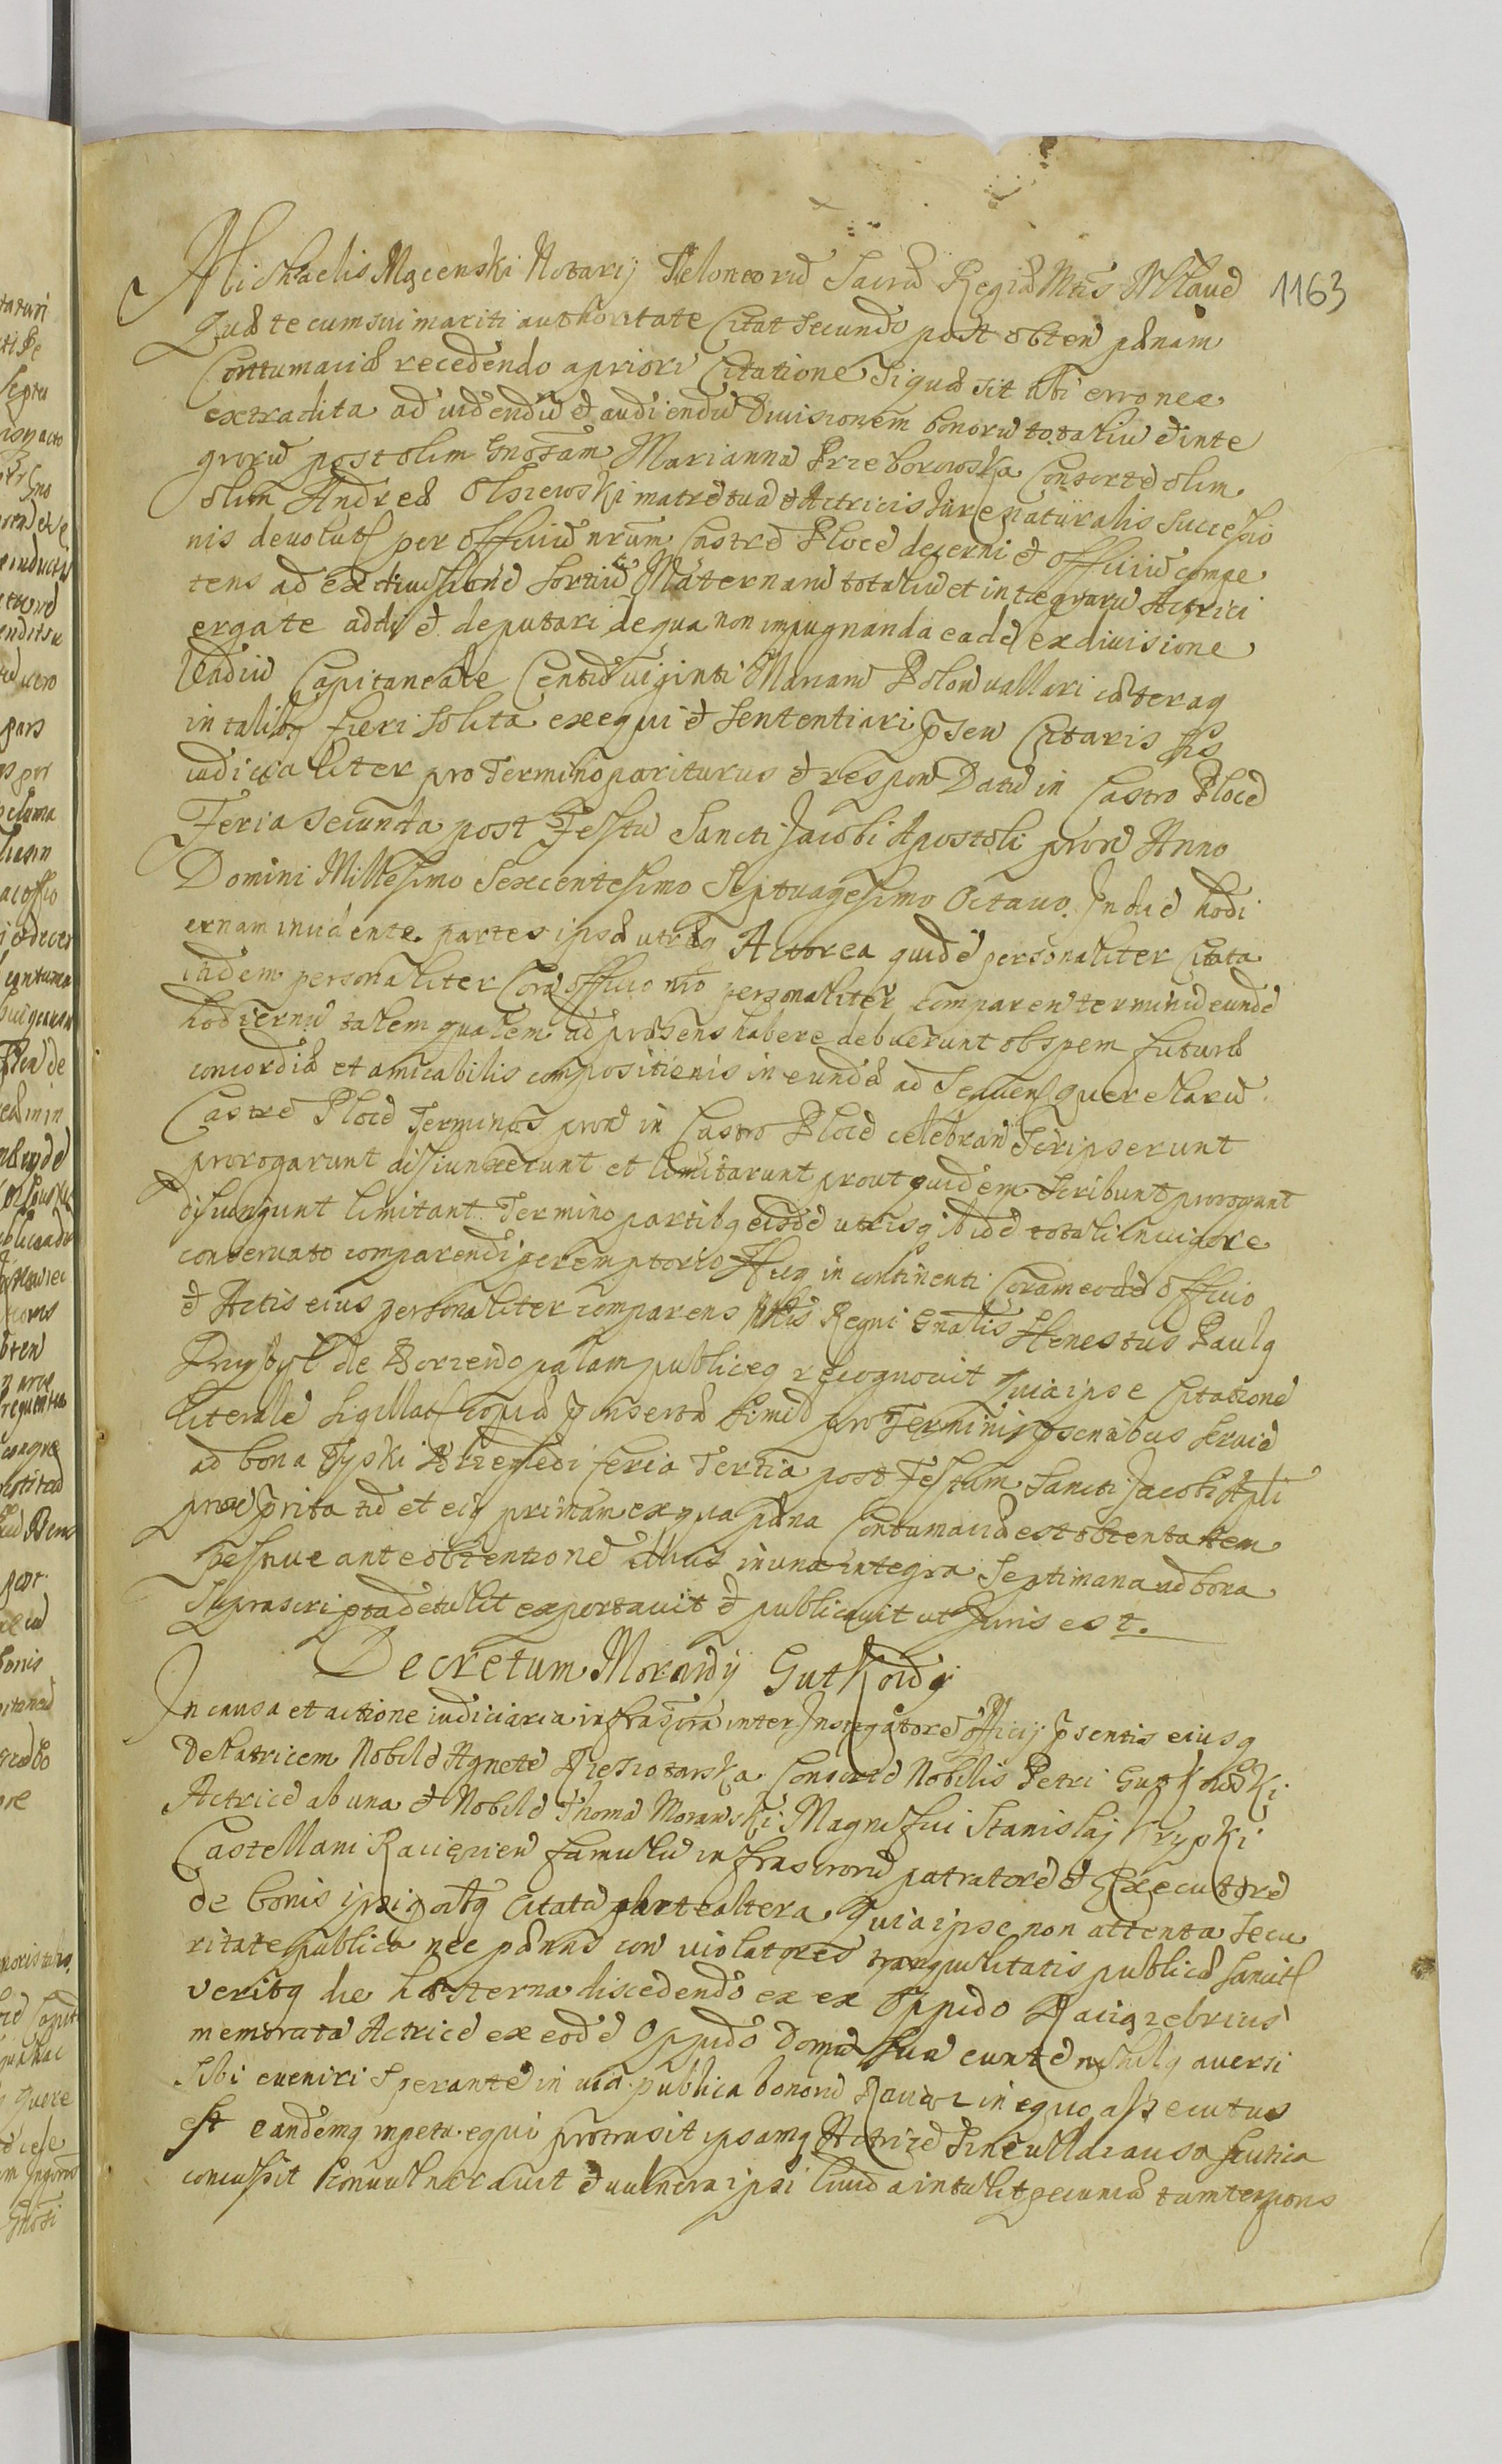 Michaelis Mącenski Notarij Teloneorū Sacrae Regiae Mtis Wlaud 1163
Quae te cum sui mariti authoritate Citat Secundo post obten paenam
Contumaciae recedendo a priori Citatione si quae sit tibi erronee
extradita ad videndū et audiendū Divisionem bonorū totaliū et inte
grorū post olim Gnosam Mariannā Przeborowska Consortē olim
olim Andreae Olszewski matrē tuā et Actricis Jure naturalis Successio
nis devolut per Officiū nrum Castrē Plocē decerni et officiū compe
tens ad Sortiū Maternarū totaliū et integrarū Actrici
erga te addi et deputari de qua non impugnanda eadē ex divisione
Vadiū Capitaneale Centū viginti Marcarū Polon vallari caeteraq
in talibq fieri solita exequi et sententiari psen Citaris sis
iudicialiter pro Termino pariturus et respon Datū in Castro Plocē
Feria Secunda post Festū Sancti Jacobi Apostoli prox Anno
Domini Millesimo Sexcentesimo Septuagesimo Octavo. In diē hodi
ernam incidente partes ipsae utraeq Actorea quidē personaliter Citata
itidem personaliter Corā officio nro personaliter comparen terminū eundē
hodiernū talem qualem ad praesens habere debuerunt ob spem futurae
concordiae et amicabilis compositionis ineundae ad Sequen Querelarū
Castrē Plocē Terminos prox in Castro Plocē celebran Scripserunt
prorogarunt disiunxerunt et limitarunt prout quidem scribunt prorogant
disiungunt limitant. Termino partibq eisdē utrisq ibidē totali in vigore
conservato comparendi peremptorie Hucq in continenti Coram eodē Officio
et Actis eius personaliter comparens Mtris Regni Gnalis Honestus Paulq
Przybył de Borzewo palam publiceq recognovit Quia ipse Citationē
literalē Sigillat copiā p insertā Simul pro Terminis psentibus Servie
ad bona Tyski Przegledi feria Tertia post Festum Sancti Jacobi Apli
prox prita tū et eiq primam ex qua paena Contumaciae est obtenta Item
pessive ante obtentionē illius in una integra Septimana ad bona
Suprascripta detulit exportavit et publicavit ut Juris est.
Decretum Morawskij Gutkowskij
In causa et actione iudiciaria infrascra inter Instigatorē officij psentis eiusq
Delatricem Nobilē Agnetē Consortē Nobilis Petri Gutkowski
Actricē ab una et Nobilē Thomā Morawski Magnifici Stanislaj Krypki
Castellani Raciązien famulū infrascrorū patratorē et Executorē
de bonis ipsiq oibq Citatū parte altera Quia ipse non attenta Secu
ritate publica nec paenas con violatores tranquilitatis publicae Sancit
veritq die hesterna discedendo ex ex Oppido Raciąz ebrius
memoratā Actricē ex eodē Oppido Domū Suā euntē nihilq aversi
sibi eveniri sperantē in via publica bonorū Raciąz in equo assecutus
est eandemq impetu equi protrusit ipsamq Actricē Sine ulla causa Scutica
concussit convulneravit et vulnera ipsi livida intulit pecuniā tum